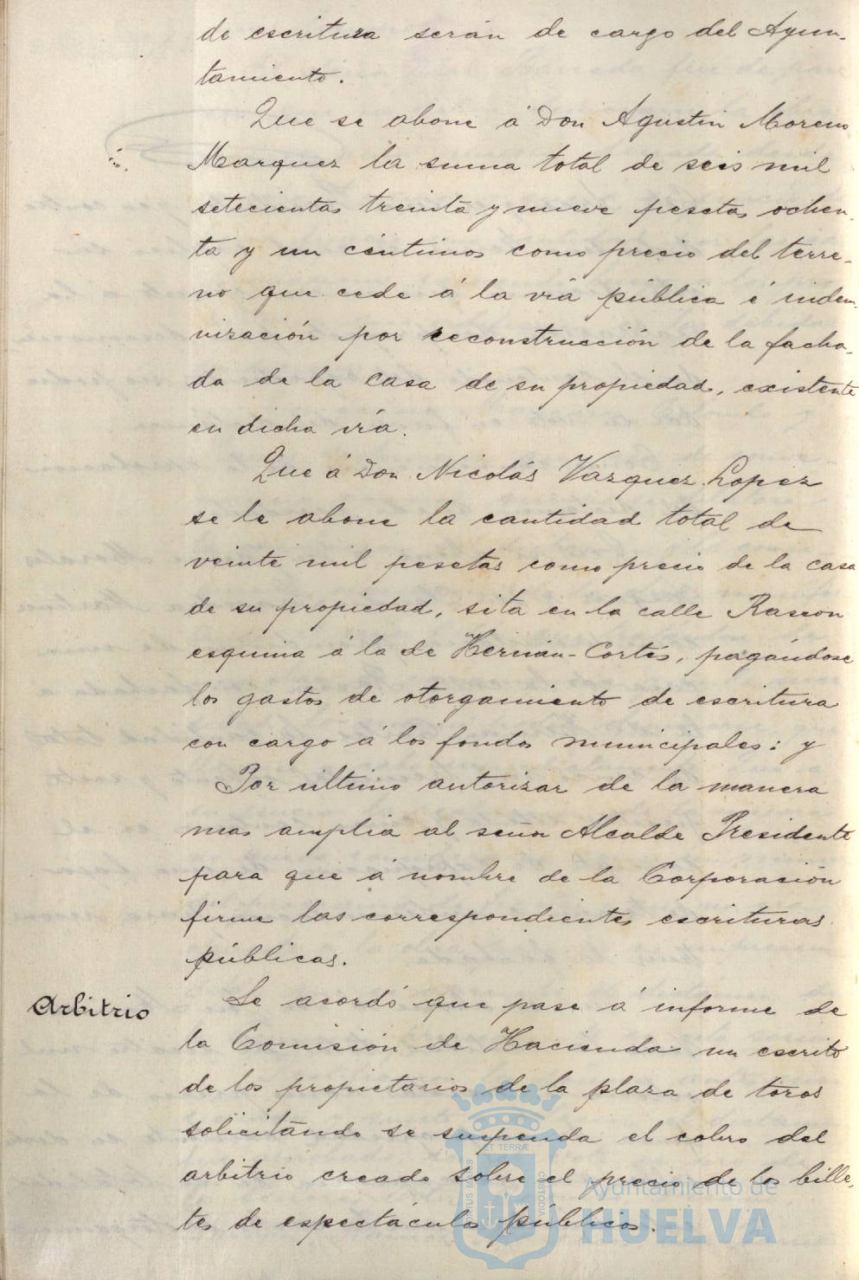 de escritura serán de cargo del Ayun-
tamiento.
Que se abone á Don Agustin Moreno
Marquez la suma total de seis mil
setecientas treinta y nueve pesetas ochen-
ta y un céntimos como precio del terre-
no que cede á la vía pública é indem-
nización por reconstrucción de la facha-
da de la casa de su propiedad, existente
en dicha vía.
Que á Don Nicolás Vázquez Lopez
se le abone la cantidad total de
veinte mil pesetas como precio de la casa
de su propiedad, sita en la calle Rascon
esquina á la de Hernán-Cortés, pagándose
los gastos de otorgamiento de escritura
con cargo á los fondos municipales: y
Por ultimo autorizar de la manera
mas amplia al señor Alcalde Presidente
para que á nombre de la Corporación
firme las correspondientes escrituras
públicas.
Arbitrio
Se acordó que pase á informe de
la Comisión de Hacienda un escrito
de los propietarios de la plaza de toros
solicitando se suspenda el cobro del
arbitrio creado sobre el precio de los bille-
tes de espectáculos públicos.
Ayuntamiento de
HUELVA